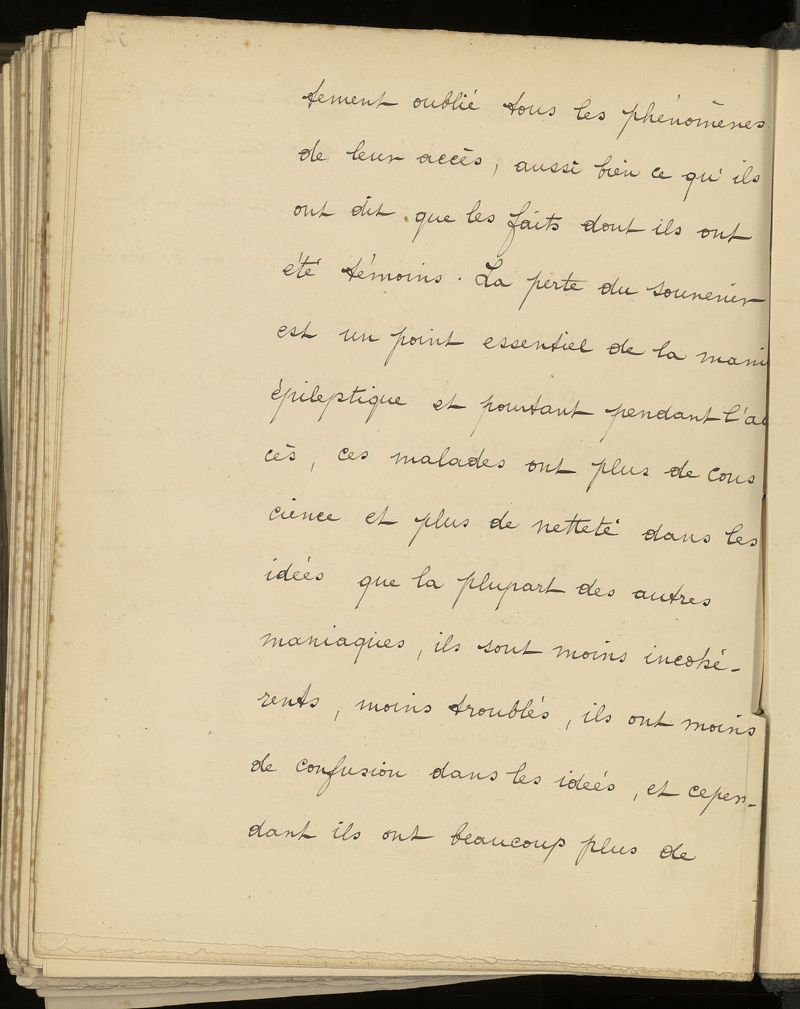 tement oublié tous les phénomènes
de leur accès, aussi bien ce qu'ils
ont dit que les faits dont ils ont
été témoins. La perte du souvenir
est un point essentiel de la mani
épileptique et pourtant pendant l'ac
cès, ces malades ont plus de cons
cience et plus de netteté dans les
idées que la plupart des autres
maniaques, ils sont moins incohé-
rents, moins troublés, ils ont moins
de confusion dans les idées, et cepen-
dant ils ont beaucoup plus de